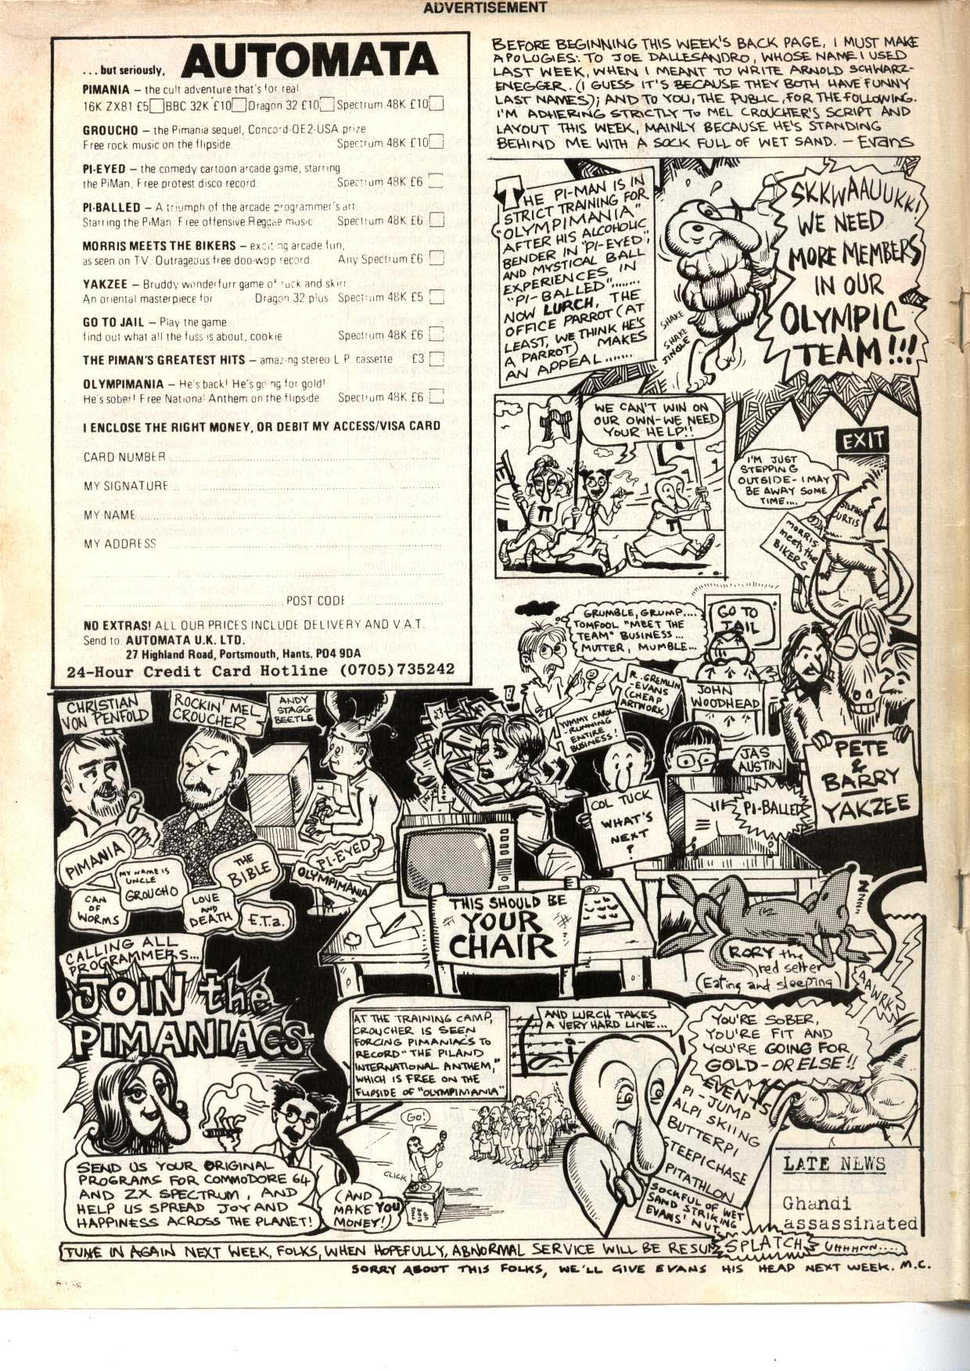 ADVERTISEMENT
... but seriously, AUTOMATA
PIMANIA – the cult adventure that's for real
16K ZX81 £5 BBC 32K £10 Dragon 32 £10 Spectrum 48K £10
GROUCHO – the Pimania sequel, Concord-QE2-USA prize
Free rock music on the flipside Spectrum 48K £10
PI-EYED – the comedy cartoon arcade game, starring
the PiMan. Free protest disco record Spectrum 48K £6
PI-BALLED – A triumph of the arcade programmer's art
Starring the PiMan. Free offensive Reggae music Spectrum 48K £6
MORRIS MEETS THE BIKERS – exciting arcade fun,
as seen on TV. Outrageous free doo-wop record Any Spectrum £6
YAKZEE – Bruddy wonderfurr game of ruck and skirr
An oriental masterpiece for Dragon 32 plus Spectrum 48K £5
GO TO JAIL – Play the game
find out what all the fuss is about, cookie Spectrum 48K £6
THE PIMAN'S GREATEST HITS – amazing stereo L.P. cassette £3
OLYMPIMANIA – He's back! He's going for gold!
He's sober! Free National Anthem on the flipside Spectrum 48K £6
I ENCLOSE THE RIGHT MONEY, OR DEBIT MY ACCESS/VISA CARD
CARD NUMBER
MY SIGNATURE
MY NAME
MY ADDRESS
POST CODE
NO EXTRAS! ALL OUR PRICES INCLUDE DELIVERY AND V.A.T.
Send to AUTOMATA U.K. LTD.
27 Highland Road, Portsmouth, Hants. PO4 9DA
24-Hour Credit Card Hotline (0705) 735242
BEFORE BEGINNING THIS WEEK'S BACK PAGE, I MUST MAKE
APOLOGIES: TO JOE DALLESANDRO, WHOSE NAME I USED
LAST WEEK, WHEN I MEANT TO WRITE ARNOLD SCHWARZ-
ENEGGER. (I GUESS IT'S BECAUSE THEY BOTH HAVE FUNNY
LAST NAMES); AND TO YOU, THE PUBLIC, FOR THE FOLLOWING.
I'M ADHERING STRICTLY TO MEL CROUCHER'S SCRIPT AND
LAYOUT THIS WEEK, MAINLY BECAUSE HE'S STANDING
BEHIND ME WITH A SOCK FULL OF WET SAND. – Evans
THE PI-MAN IS IN
STRICT TRAINING FOR
"OLYMPIMANIA"
AFTER HIS ALCOHOLIC
BENDER IN 'PI-EYED',
AND MYSTICAL BALL
EXPERIENCES IN
"PI-BALLED".......
NOW LURCH, THE
OFFICE PARROT (AT
LEAST, WE THINK HE'S
A PARROT) MAKES
AN APPEAL......
SHAKE
SHAKE
JINGLE
SKKWAAUUKK!
WE NEED
MORE MEMBERS
IN OUR
OLYMPIC
TEAM!!!
WE CAN'T WIN ON
OUR OWN-WE NEED
YOUR HELP!!
EXIT
I'M JUST
STEPPING
OUTSIDE- I MAY
BE AWAY SOME
TIME....
CURTIS
MORRIS
meets the
BIKERS
GRUMBLE, GRUMP....
TOMFOOL "MEET THE
TEAM" BUSINESS...
MUTTER, MUMBLE...
GO TO
JAIL
R. GREMLIN
-EVANS
(CHEAP
ARTWORK)
JOHN
WOODHEAD
YUMMY CAROL
-RUNNING
ENTIRE
BUSINESS!
JAS
AUSTIN
PETE
&
BARRY
YAKZEE
COL TUCK
WHAT'S
NEXT
?
PI-BALLED
CHRISTIAN
VON PENFOLD
ROCKIN' MEL
CROUCHER
ANDY
STAGG-
BEETLE
PIMANIA
MY NAME IS
UNCLE
GROUCHO
THE
BIBLE
CAN
OF
WORMS
LOVE
AND
DEATH
E.T.a.
PI-EYED
OLYMPIMANIA
THIS SHOULD BE
YOUR
CHAIR
ZZZZ
RORY the
red setter
(Eating and sleeping)
CALLING ALL
PROGRAMMERS...
JOIN the
PIMANIACS
SEND US YOUR ORIGINAL
PROGRAMS FOR COMMODORE 64
AND ZX SPECTRUM, AND
HELP US SPREAD JOY AND
HAPPINESS ACROSS THE PLANET!
(AND
MAKE YOU
MONEY!)
AT THE TRAINING CAMP,
CROUCHER IS SEEN
FORCING PIMANIACS TO
RECORD "THE PILAND
INTERNATIONAL ANTHEM,"
WHICH IS FREE ON THE
FLIPSIDE OF "OLYMPIMANIA"
GO!
CLICK
AND LURCH TAKES
A VERY HARD LINE...
AWRK
YOU'RE SOBER,
YOU'RE FIT AND
YOU'RE GOING FOR
GOLD-OR ELSE!!
EVENTS
PI-JUMP
ALPI SKIING
BUTTERPI
STEEPICHASE
PITATHLON
SOCKFUL OF WET
SAND STRIKING
EVANS' NUT
LATE NEWS
Ghandi
assassinated
TUNE IN AGAIN NEXT WEEK, FOLKS, WHEN HOPEFULLY, ABNORMAL SERVICE WILL BE RESUM
SPLATCH
UHHNNN....
SORRY ABOUT THIS FOLKS, WE'LL GIVE EVANS HIS HEAD NEXT WEEK. M.C.